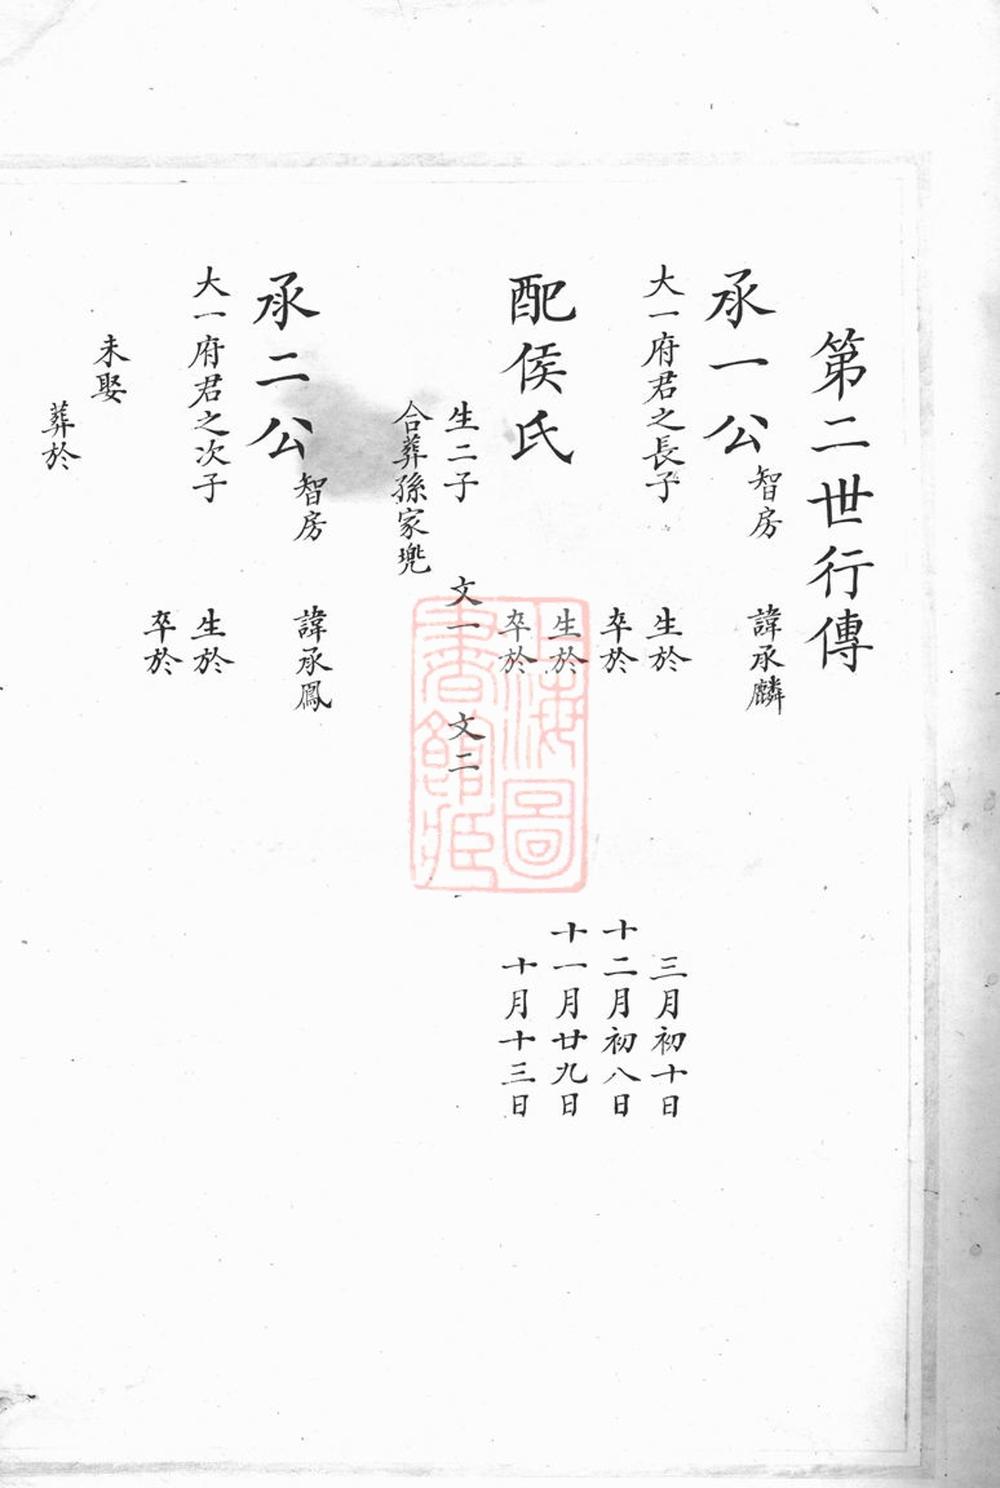 第二世行傳
承一公 智房 諱承麟
大一府君之長子 生於 三月初十日
卒於 十二月初八日
配侯氏 生於 十一月廿九日
卒於 十月十三日
生二子 文一 文二
合葬孫家兠
承二公 智房 諱承鳳
大一府君之次子 生於
卒於
未娶
葬於
上海圖
書館藏